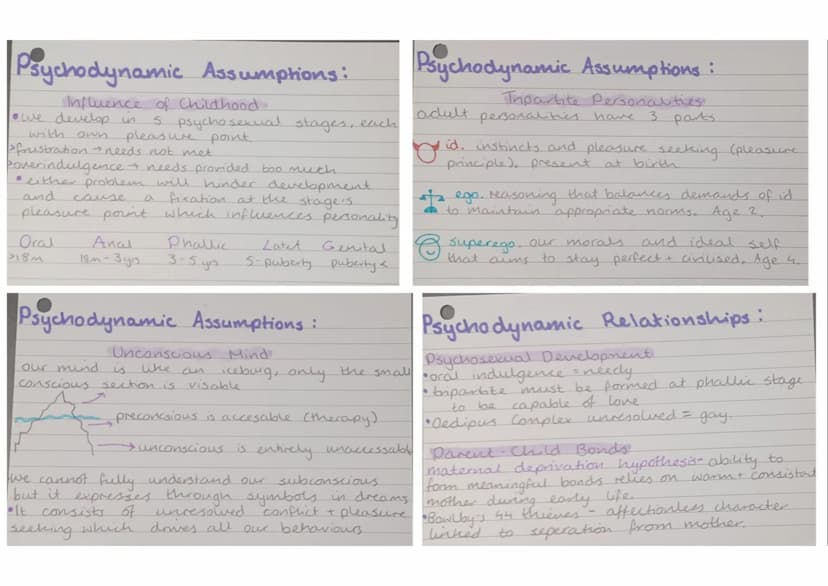 Psychodynamic Assumptions:
Influence of Childhood
• we develop in 5 psychosexual stages, each
with own pleasure point
> frustration → needs not met
> overindulgence → needs provided too much
• either problem will hinder development
and cause a fixation at the stages
pleasure point which influences personality
Oral Anal Phallic Latet Genital
>18m 18m-3yrs 3-5yrs 5-puberty puberty<
Psychodynamic Assumptions:
Tripartite Personalities
adult personalities have 3 parts
id. instincts and pleasure seeking (pleasure
principle). present at birth
ego. reasoning that balances demands of id
to maintain appropriate norms. Age 2.
superego. our morals and ideal self
that aims to stay perfect + Age 4.
Psychodynamic Assumptions:
Unconscious Mind
our mind is like an iceburg, only the small
conscious section is visable
preconscious is accesable (therapy)
→ unconscious is entirely unaccessable
we cannot fully understand our subconscious
but it expresses through symbols in dreams
• It consists of unresolved conflict + pleasure
seeking which drives all our behaviours
Psychodynamic Relationships:
Psychosexual Development
• oral indulgence = needy
• tripartite must be formed at phallic stage
to be capable of love
• Oedipus complex unresolved = gay.
Parent-Child Bonds
maternal deprivation hypothesis- ability to
form meaningful bonds relies on warm + consistant
mother during early life.
• Bowlby's 44 thieves - affectionless character
linked to seperation from mother.